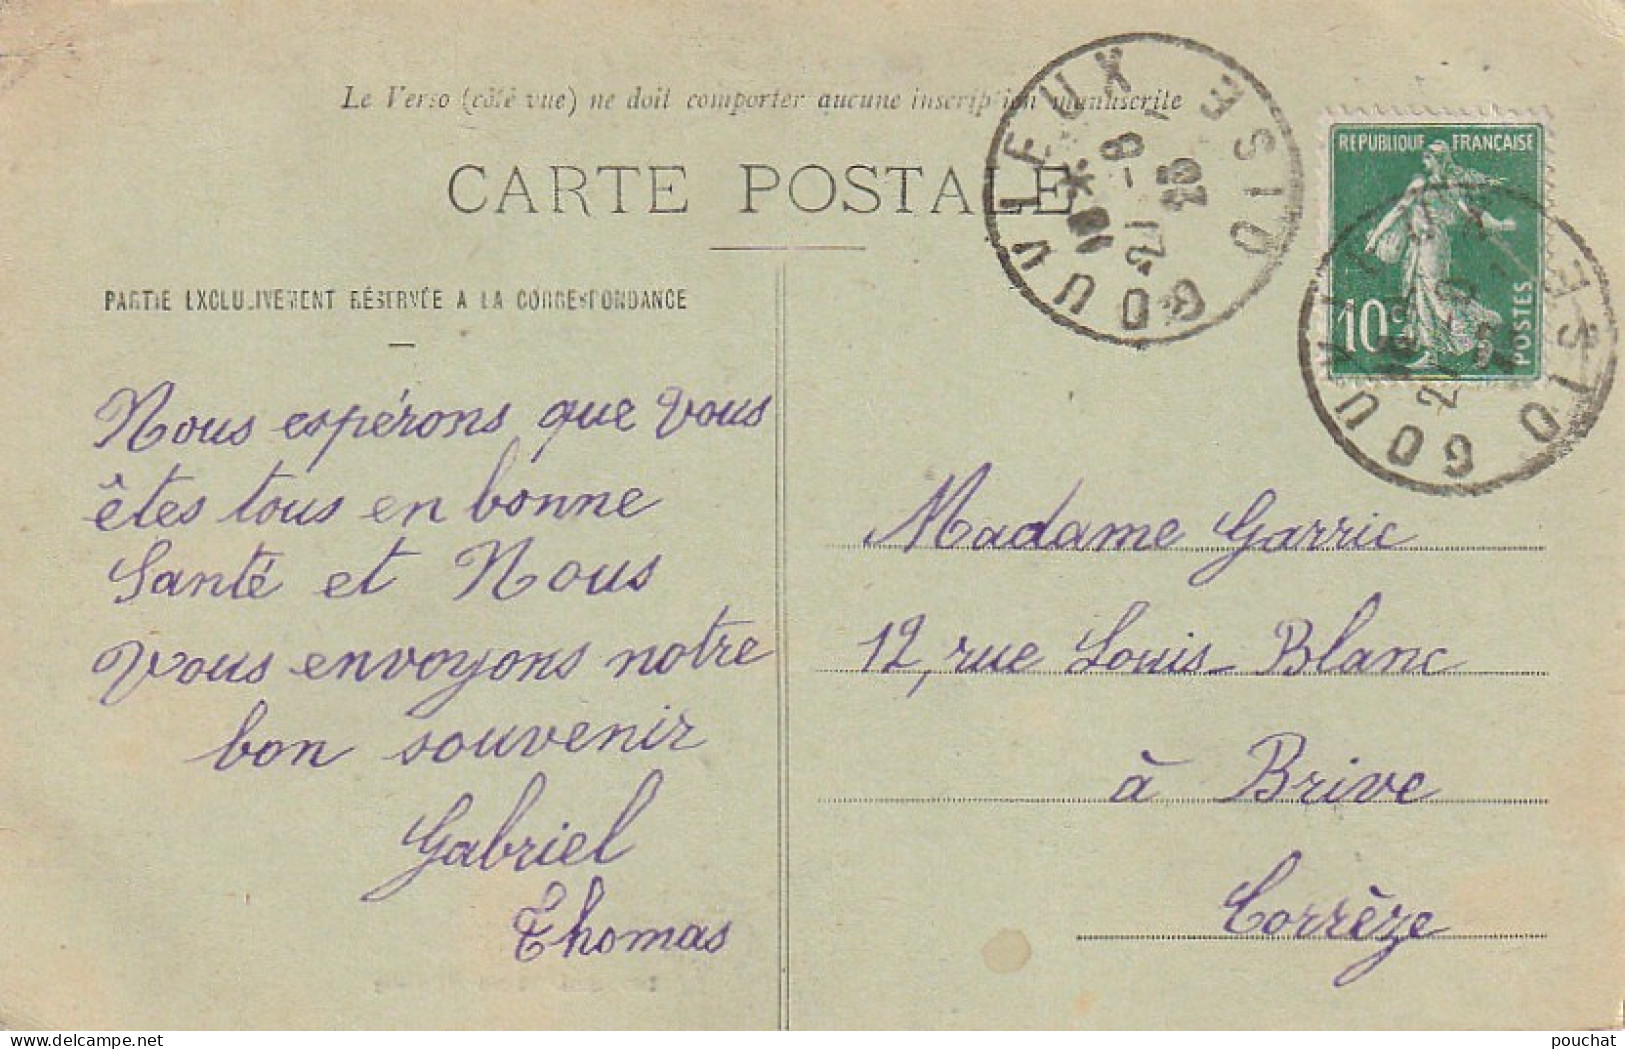 Le Verso (côté vue) ne doit comporter aucune inscription manuscrite
CARTE POSTALE
PARTIE EXCLUSIVEMENT RÉSERVÉE A LA CORRESPONDANCE
Nous espérons que Vous
êtes tous en bonne
Santé et Nous
Vous envoyons notre
bon souvenir
Gabriel
Thomas
GOUVIEUX OISE
REPUBLIQUE FRANÇAISE
10c
POSTES
GOUVIEUX OISE
Madame Garric
12, rue Louis-Blanc
à Brive
Corrèze
www.delcampe.net
pouchat